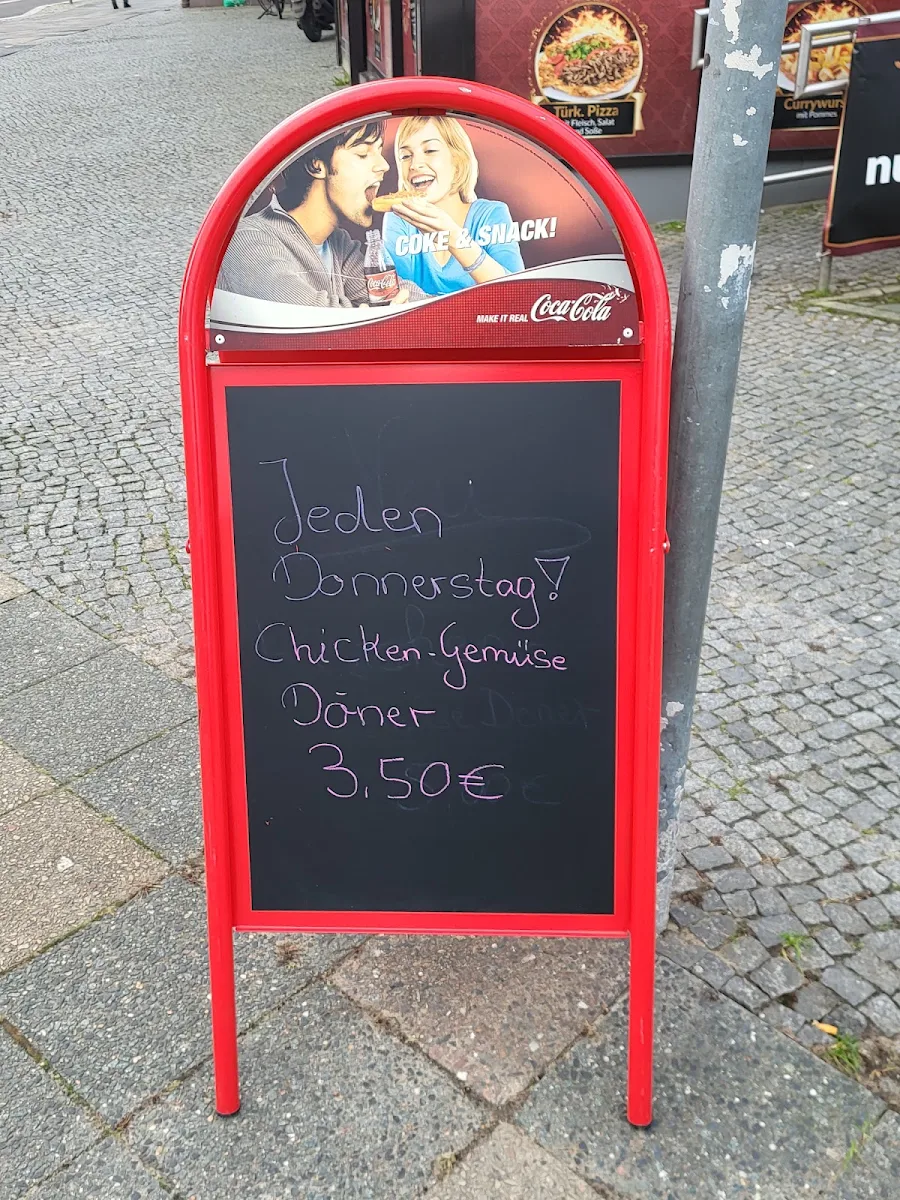 Türk. Pizza
mit Fleisch, Salat
und Soße
Currywurs
mit Pommes
nu
COKE & SNACK!
Coca-Cola
MAKE IT REAL Coca-Cola
Jeden
Donnerstag!
Chicken-Gemüse
Döner
3,50€